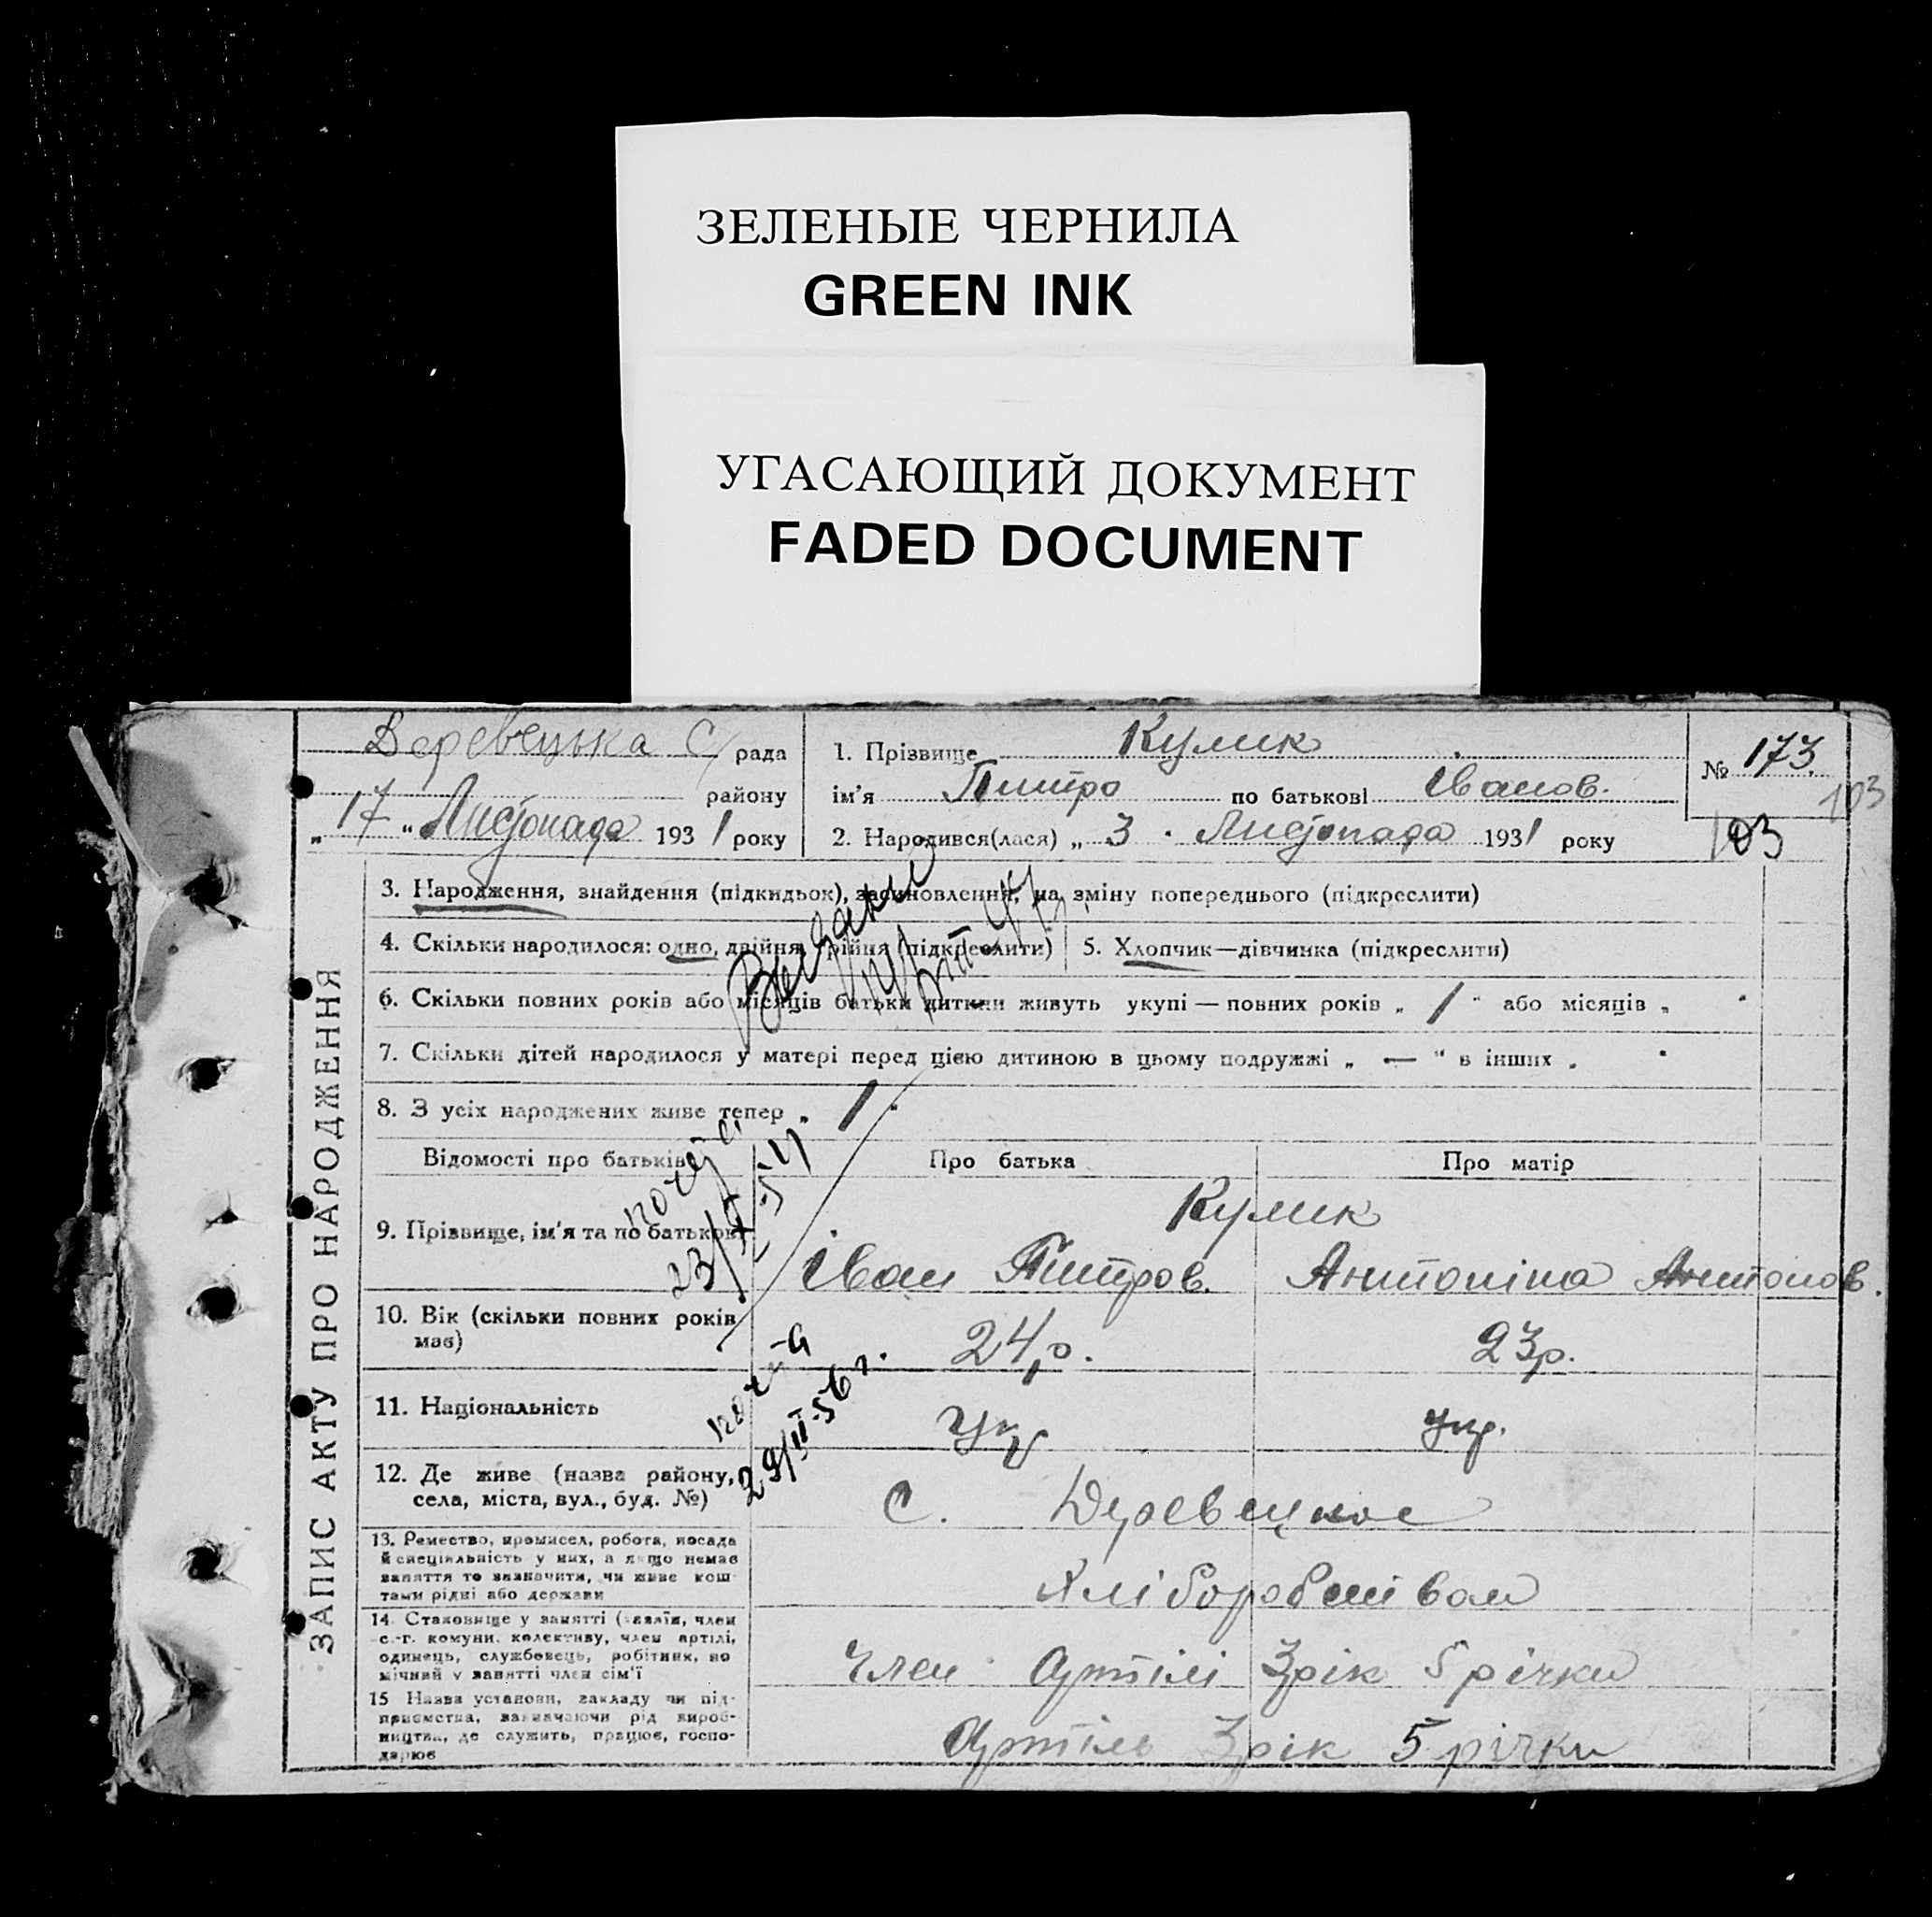 ЗЕЛЕНЫЕ ЧЕРНИЛА
GREEN INK
УГАСАЮЩИЙ ДОКУМЕНТ
FADED DOCUMENT
ЗАПИС АКТУ ПРО НАРОДЖЕННЯ
Деревецька С/рада
району
„17" Листопада 1931 року
1. Прізвище Кулик
ім'я Питро по батькові Іванов.
2. Народився(лася) „ 3 " Листопада 1931 року
№ 173
103
103
3. Народження, знайдення (підкидьок), засиновлення, на зміну попереднього (підкреслити)
4. Скільки народилося: одно, двійня, трійня (підкреслити) 5. Хлопчик—дівчинка (підкреслити)
6. Скільки повних років або місяців батьки дитини живуть укупі — повних років „ 1 " або місяців „ "
7. Скільки дітей народилося у матері перед цією дитиною в цьому подружжі „ — " в інших „ "
8. З усіх народжених живе тепер „ 1 "
Відомості про батьків Про батька Про матір
9. Прізвище, ім'я та по батькові
Кулик
Іван Питров. Антоніна Антонов.
10. Вік (скільки повних років має) 24 р. 23 р.
11. Національність Укр Укр.
12. Де живе (назва району,
села, міста, вул., буд. №) С. Деревецьке
13. Ремество, промисел, робота, посада
й спеціяльність у них, а якщо немає
заняття то зазначити, чи живе кош-
тами рідні або держави
Хліборобшівом
14. Становище у занятті (хазяїн, член
с.-г. комуни, колективу, член артілі,
одинець, службовець, робітник, по
мічний у занятті член сім'ї
Член Артілі 3 рік 5 річки
15 Назва установи, закладу чи під-
приємства, зазначаючи рід вироб-
ництва, де служить, працює, госпо-
дарює
Артіль 3 рік 5 річки
23/X-54
29/II-56 г.